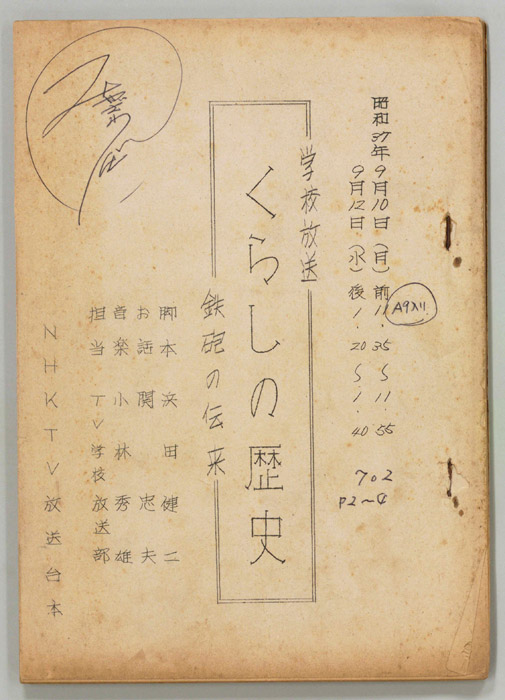 昭和37年9月10日(月)前11.35〜11.55
9月12日(水)後1.20〜1.40
A9入り
702
P2〜4
学校放送
くらしの歴史
鉄砲の伝来
脚本 浜田健二
お話 関忠夫
音楽 小林秀雄
担当 TV学校放送部
NHKTV放送台本